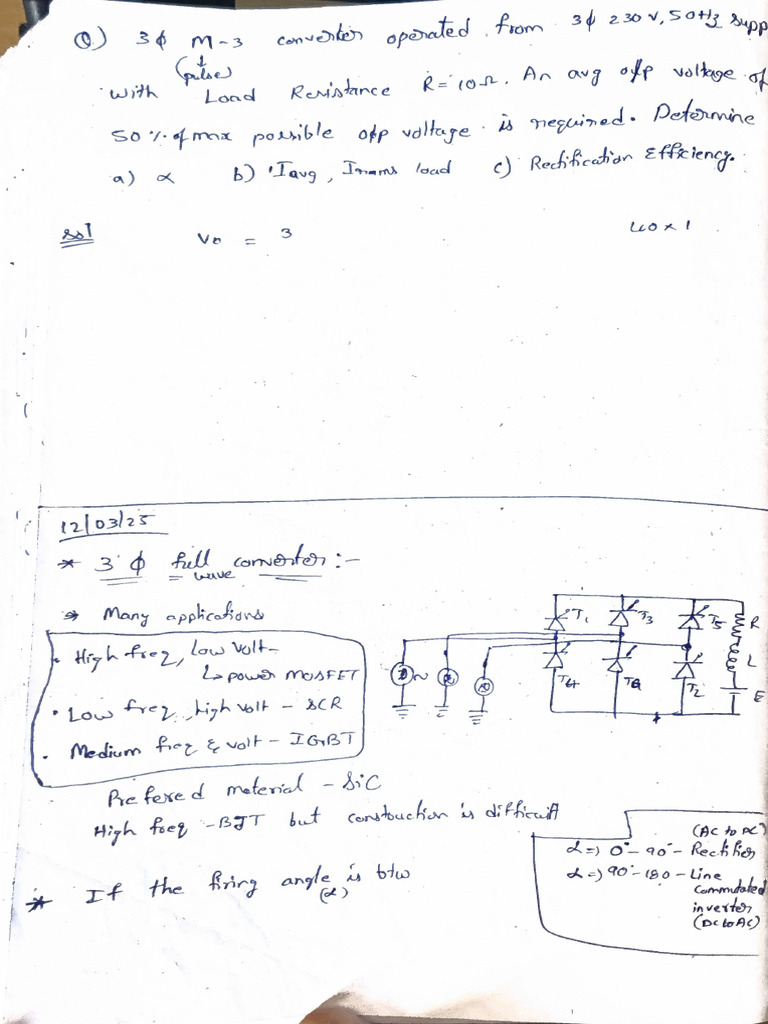 Q) 3ϕ M-3 converter operated from 3ϕ 230 V, 50Hz supp
(pulse)
with Load Resistance R = 10Ω. An avg o/p voltage of
50 % of max possible o/p voltage is required. Determine
a) α b) Iavg, Irms load c) Rectification Efficiency.
Sol V0 = 3
12/03/25
* 3 ϕ full converter :-
wave
→ Many applications
• High freq, low volt-
↳ power MOSFET
• Low freq, high volt - SCR
• Medium freq & volt - IGBT
T1 T3 T5 R
L
T4 T6 T2 E
Prefered material - SiC
High freq - BJT but constuction is difficult
(AC to DC)
α => 0° - 90° - Rectifier
α => 90° - 180 - Line
commutated
inverter
(DC to AC)
* If the firing angle is btw
(α)